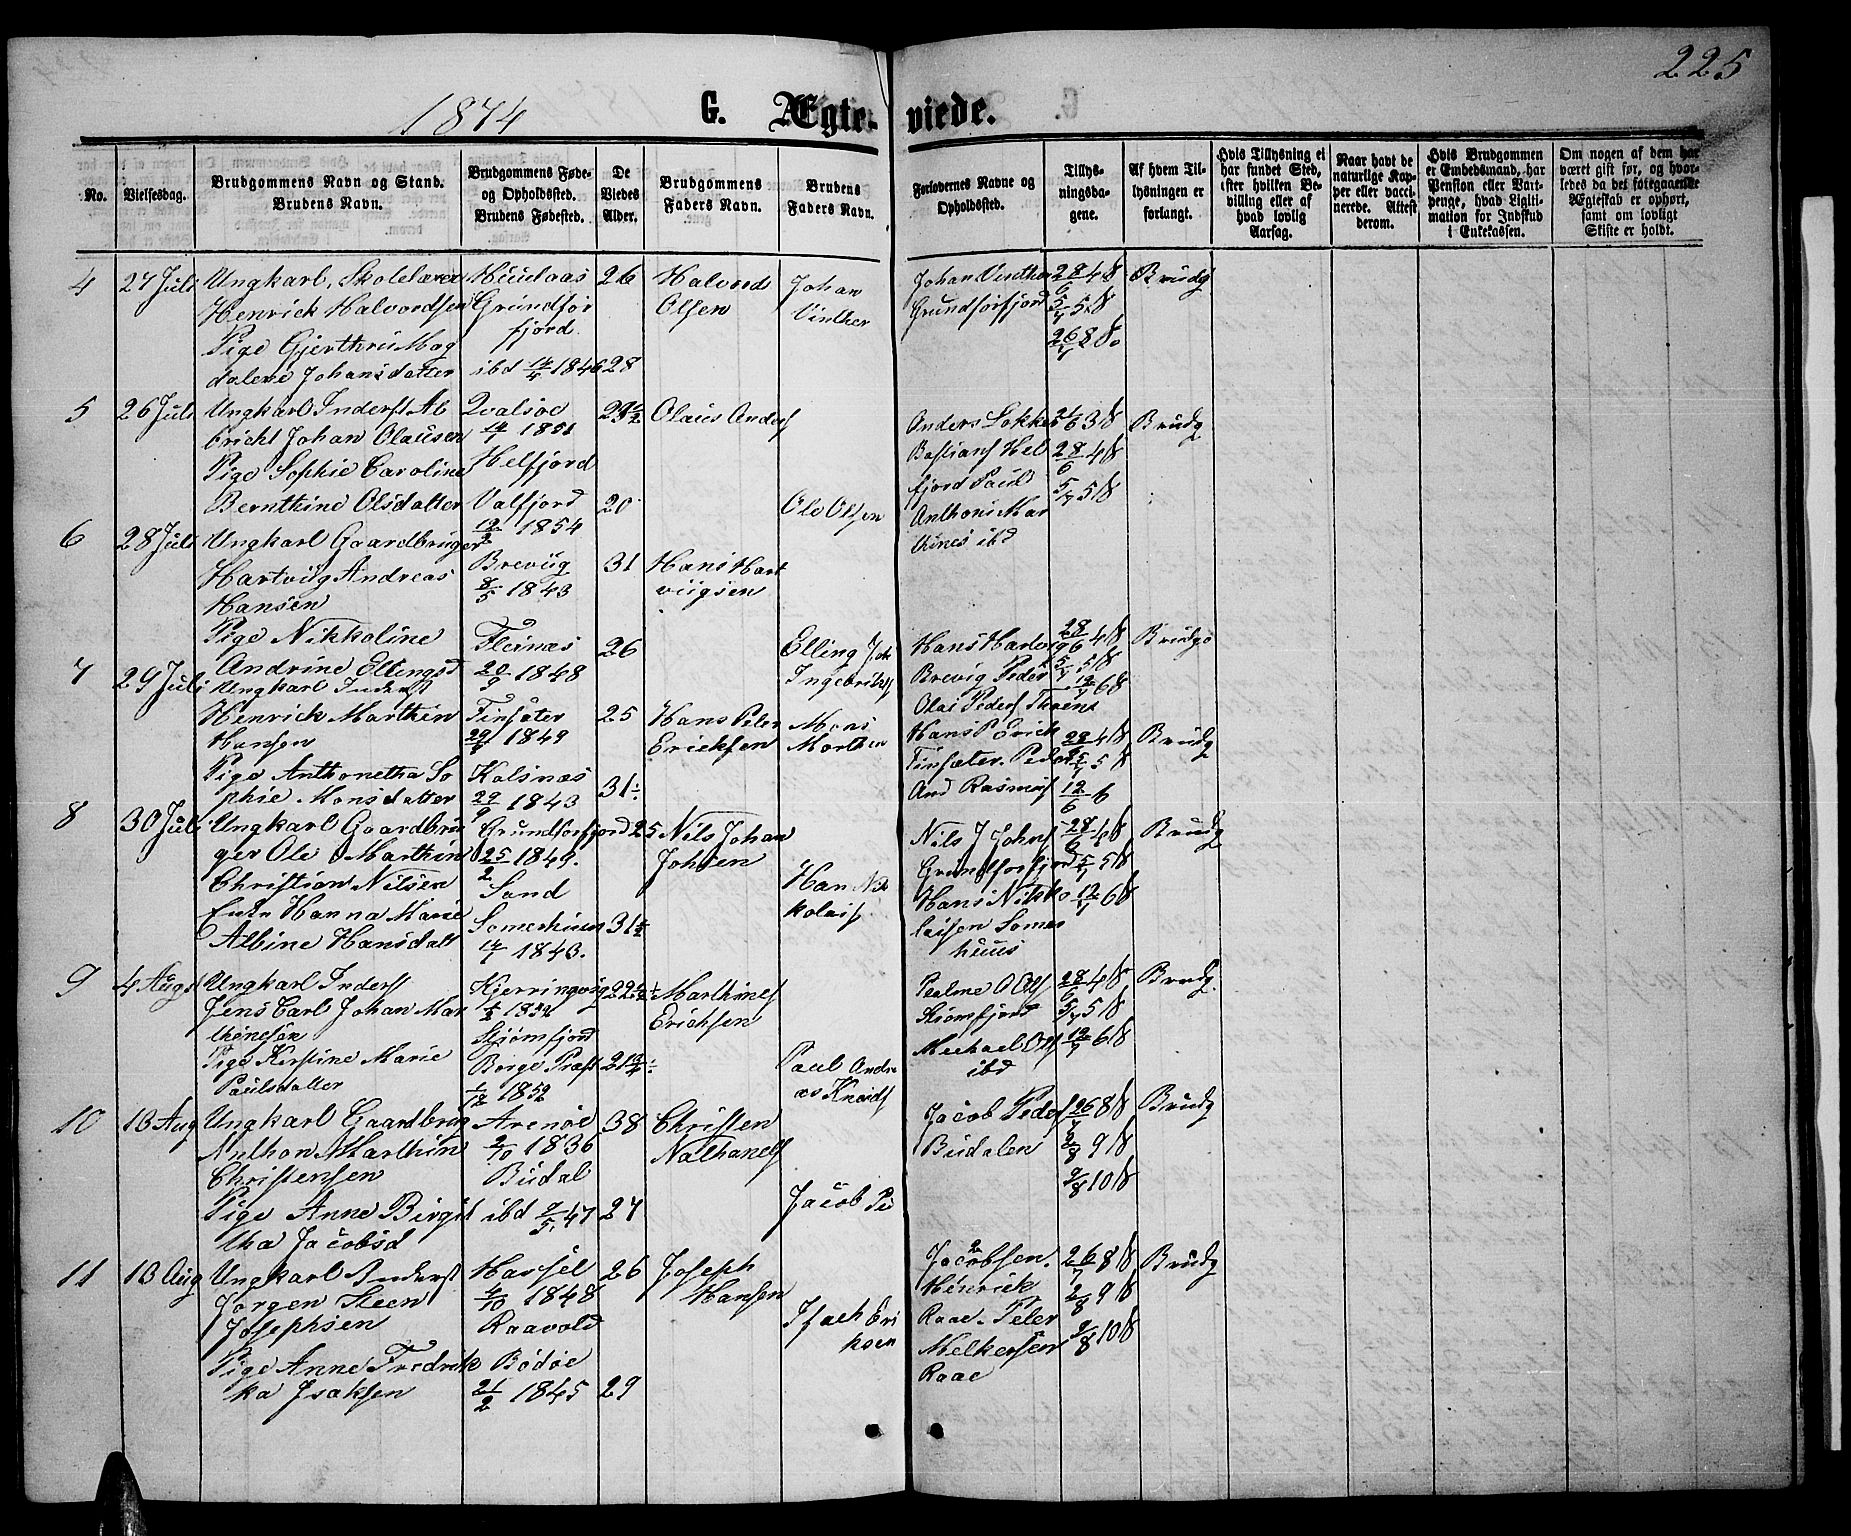 225
1874
G. Ægte- viede.
No.
Vielsesdag.
Brudgommens Navn og Stand.
Brudens Navn.
Brudgommens Føde-
og Opholdssted.
Brudens Fødested.
De
Viedes
Alder.
Brudgommens
Faders Navn.
Brudens
Faders Navn.
Forlovernes Navne og
Opholdssted.
Tillys-
ningsda-
gene.
Af hvem Til-
lysningen er
forlangt.
Hvis Tillysning ei
har fundet Sted,
efter hvilken Be-
villing eller af
hvad lovlig
Aarsag.
Naar havt de
naturlige Kop-
per eller vacci-
nerede. Attest
derom.
Hvis Brudgommen
er Embedsmand, har
Pension eller Vart-
penge, hvad Ligiti-
mation for Indskud
i Enkekassen.
Om nogen af dem har
været gift før, og hvor-
ledes da det foregaaende
Ægteskab er ophørt,
samt om lovligt
Skifte er holdt.
4
27 Juli
Ungkarl, Skolelærer
Henrick Halvordsen
Pige Gjerthru Mag
dalene Johansdatter
Grundfør
fjord
ibd 14/4 1846
26
28
Halvords
Olsen
Johan
Vinther
Johan Vinther
Grundforfjord
28/6 4 S
5/7 5 S
26/7 8 S
Brudg
5
26 Juli
Ungkarl Inderst Al
bricht Johan Olausen
Pige Sophie Caroline
Bernthine Olsdatter
Qvalsoe
14/1 1851
Helfjord
Valfjord
12/2 1854
23½
20
Olaus Anders
Ole Olsen
Anders Lokke
Bastians Hel
fjord Paul
Anthoni Mar
thines ibd
21/6 3 S
28/6 4 S
5/7 5 S
Brudg
6
28 Juli
Ungkarl Gaardbruger
Hartvig Andreas
Hansen
Pige Nikkoline
Andrine Ellingsd
Breviig
8/5 1843
Fleinæs
20/9 1848
31
26
Hans Hart
viigsen
Elling Joh
Ingebrikts
Hans Hartvig
Brevig Peder
Olai Peders
28/6 4 S
5/7 5 S
12/7 6 S
Brudg
7
29 Juli
Ungkarl Inderst
Henrick Marthin
Hansen
Pige Anthonetha So
phie Monsdatter
Finsæter
1849
Kalsnæs
29/9 1843
25
31
Hans Peter
Ericksen
Mons
Morthen
Hans P Erick
Finsæter. Peder
And Rasmus
4 S
5 S
12/6 6
Brudg
8
30 Juli
Ungkarl Gaardbru
ger Ole Marthin
Christian Nilsen
Enke Hanna Marie
Albine Hansdatt
Grundforfjord
25/2 1849.
Sand
Somerhuus
14/7 1843.
25
31½
Nils Johan
Johsen
Han Nik
kolais
Nils J Johns
Grundforfjord
Hans Nikko
laisen Somer
huus
28/6 4 S
5/7 5 S
12/7 6 S
Brudg
9
4 Augs
Ungkarl Inderst
Jens Carl Johan Mar
thinesen
Pige Kirstine Marie
Paulsdatter
Kjerringvig
1852
Skjomfjord
Borge Præst
1/12 1852
22
21
Marthines
Erichsen
Paul Andre
as Knuds
O Ols
Skjomfjord
Michael Ols
ibd
28/6 4 S
5/7 5 S
12/7 6 S
Brudg.
10
13 Aug
Ungkarl Gaardbrug
Anthon Marthin
Christensen
Pige Anne Birgit
tha Jacobsd
Arenøe
2/10 1836
Budal
ibd 7/5 47
38
27
Christen
Nathanels
Jacob Pe
Jacob Peders
Budalen
26/7 8 S
2/8 9 S
9/8 10 S
Brudg
11
13 Aug
Ungkarl Inderst
Jørgen Steen
Josephsen
Pige Anne Fredrik
ka Isaksen
Hassel
4/10 1848
Raavold
Bodøe
21/2 1845
26
29
Joseph
Hansen
Isach Eri
ksen
Jacobsen.
Henrick
Raae. Peter
Melkersen
Raae
26/7 8 S
2/8 9 S
9/8 10 S
Brudg